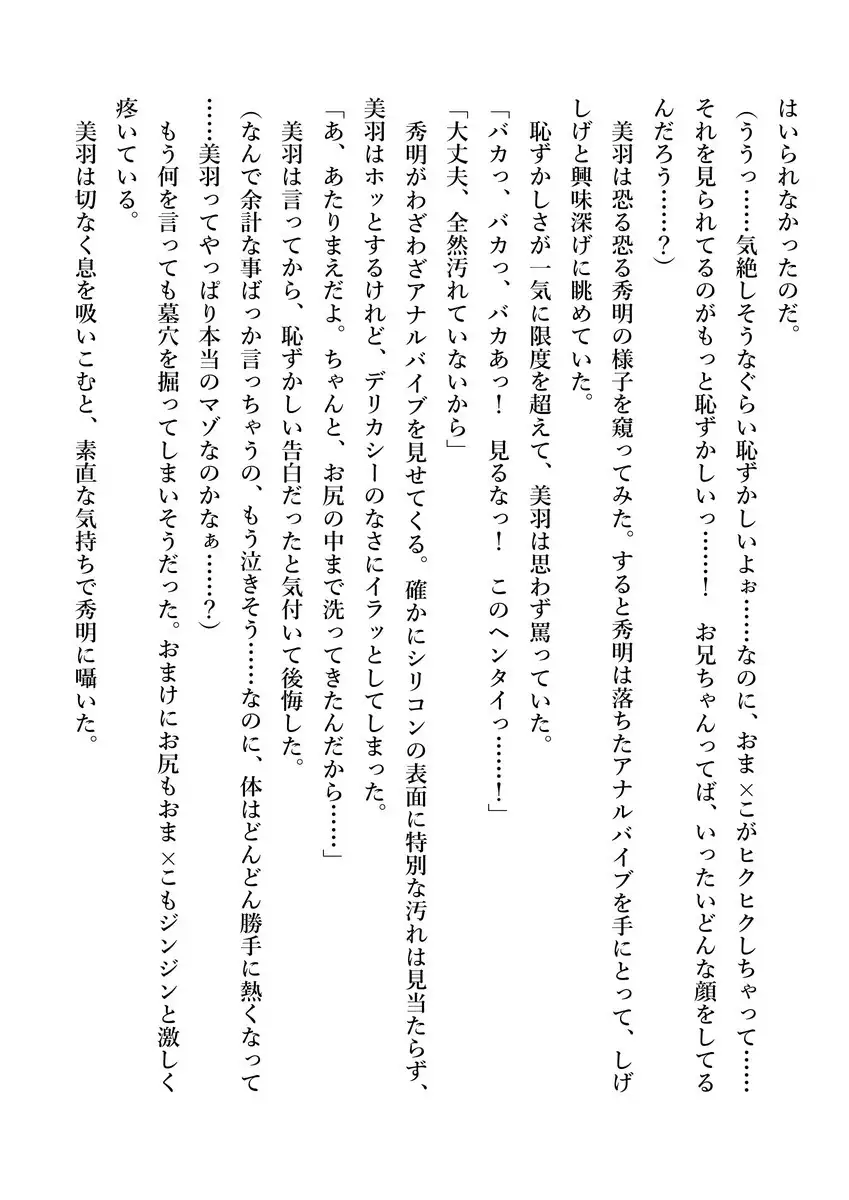 はいられなかったのだ。
（ううっ……気絶しそうなぐらい恥ずかしいよぉ……なのに、おま×こがヒクヒクしちゃって……
それを見られてるのがもっと恥ずかしいっ……！　お兄ちゃんってば、いったいどんな顔をしてる
んだろう……？）
　美羽は恐る恐る秀明の様子を窺ってみた。すると秀明は落ちたアナルバイブを手にとって、しげ
しげと興味深げに眺めていた。
　恥ずかしさが一気に限度を超えて、美羽は思わず罵っていた。
「バカっ、バカっ、バカあっ！　見るなっ！　このヘンタイっ……！」
「大丈夫、全然汚れていないから」
　秀明がわざわざアナルバイブを見せてくる。確かにシリコンの表面に特別な汚れは見当たらず、
美羽はホッとするけれど、デリカシーのなさにイラッとしてしまった。
「あ、あたりまえだよ。ちゃんと、お尻の中まで洗ってきたんだから……」
　美羽は言ってから、恥ずかしい告白だったと気付いて後悔した。
（なんで余計な事ばっか言っちゃうの、もう泣きそう……なのに、体はどんどん勝手に熱くなって
……美羽ってやっぱり本当のマゾなのかなぁ……？）
　もう何を言っても墓穴を掘ってしまいそうだった。おまけにお尻もおま×こもジンジンと激しく
疼いている。
　美羽は切なく息を吸いこむと、素直な気持ちで秀明に囁いた。